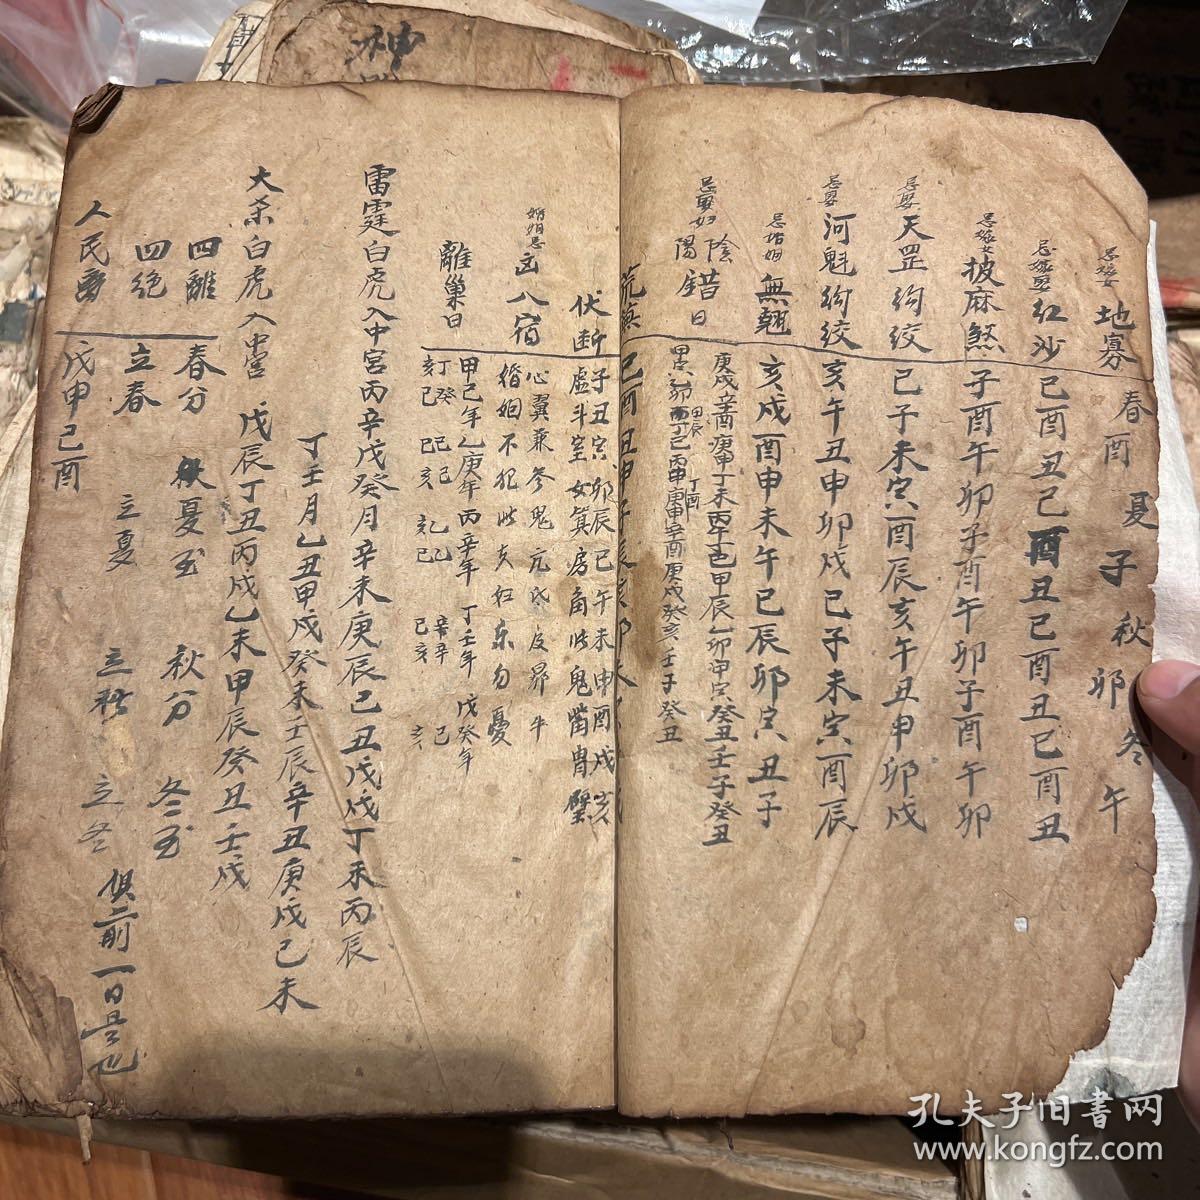 神
忌嫁女 地寡 春酉 夏子 秋卯 冬午
忌嫁娶 红沙 巳酉丑巳酉丑巳酉丑巳酉丑
忌嫁女 披麻煞 子酉午卯子酉午卯子酉午卯
忌娶 天罡絇绞 巳子未寅酉辰亥午丑申卯戌
忌娶 河魁絇绞 亥午丑申卯戌巳子未寅酉辰
忌婚姻 無翹 亥戌酉申未午巳辰卯寅丑子
忌娶妇 陰陽錯日
庚戌辛酉庚申丁未丙午丁巳甲辰乙卯甲寅癸丑壬子癸丑
荒蕪 巳酉丑申子辰亥卯未
伏断 子丑寅卯辰巳午未申酉戌亥
虚斗室女箕房角张鬼觜胃壁
婚姻忌 凶八宿 心翼兼参鬼亢氐
婚姻不犯
勿憂
離巢日 甲己年 乙庚年 丙辛年 丁壬年 戊癸年
雷霆白虎入中宫 丙辛戊癸月 辛未庚辰己丑戊戌丁未丙辰
丁壬月乙丑甲戌癸未壬辰辛丑庚戌己未
大杀白虎入中宫 戊辰丁丑丙戌乙未甲辰癸丑壬戌
四離 春分 夏至 秋分 冬至
四绝 立春 立夏 立秋 立冬 俱前一日是也
人民 戊申己酉
孔夫子旧书网
www.kongfz.com